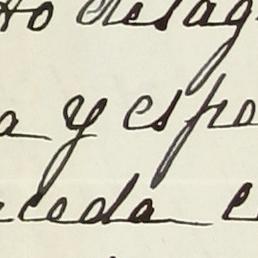 to desag
a y espo
ceda e